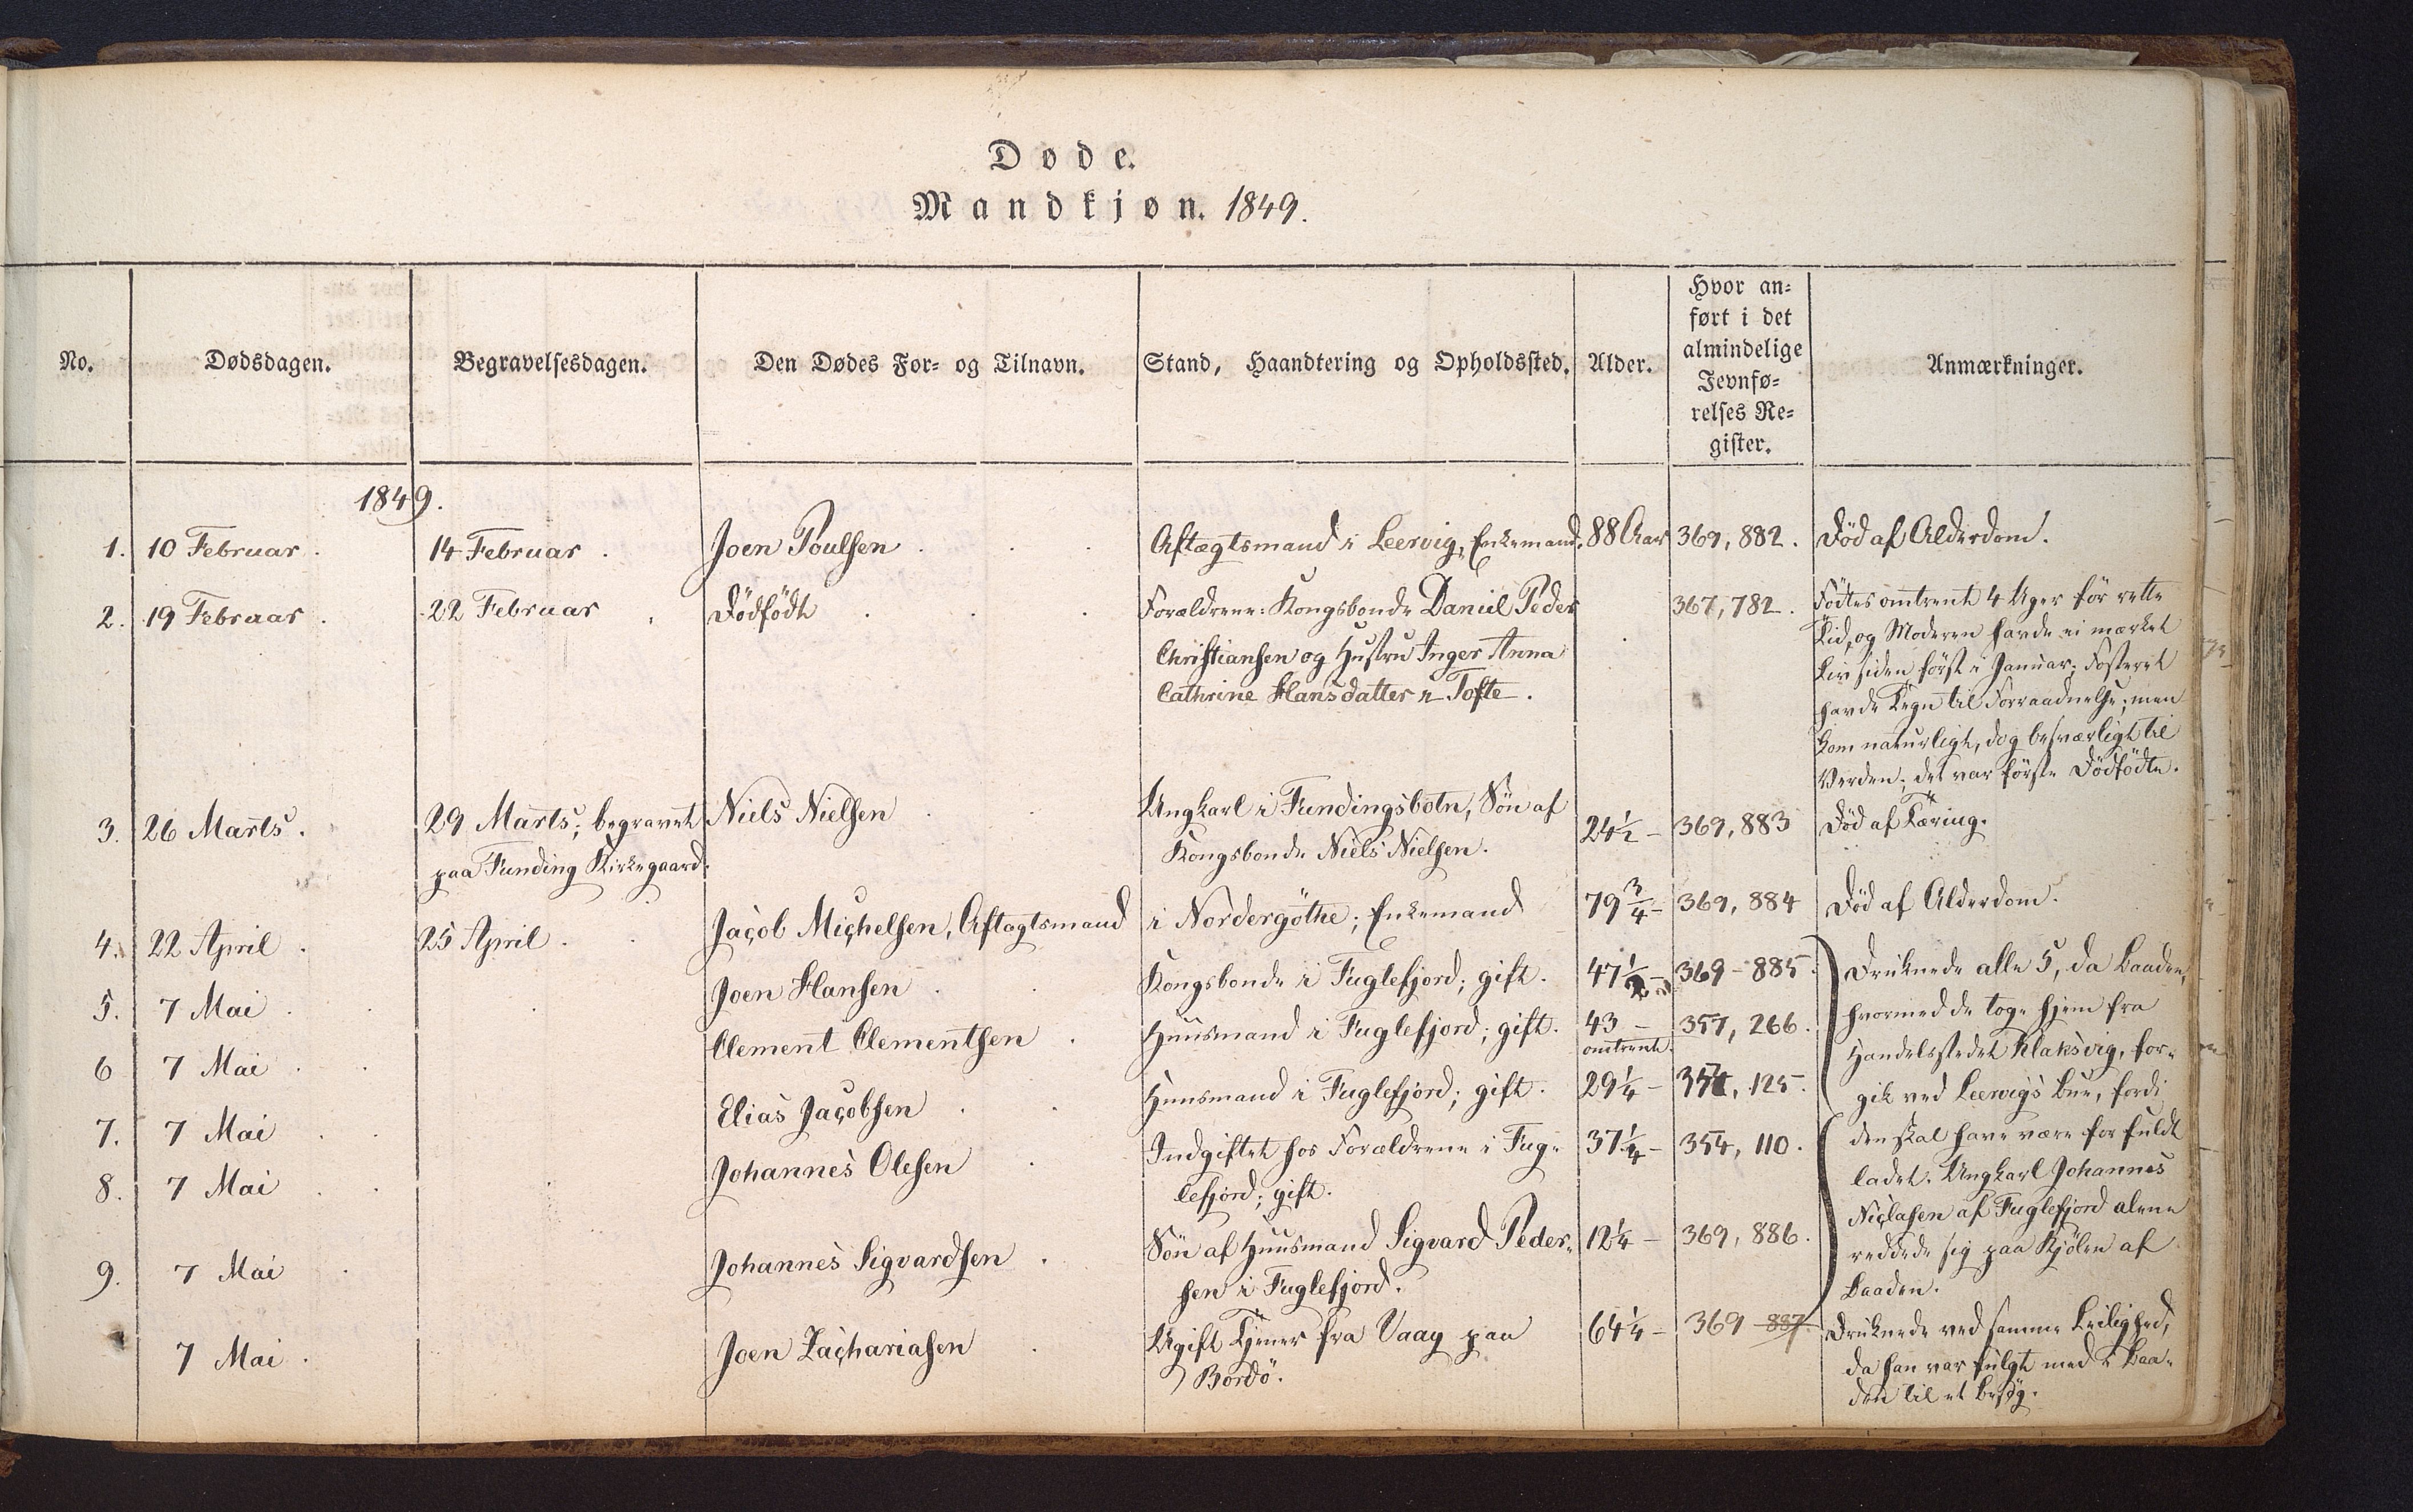 Døde.
Mandkjøn. 1849.
No.
Dødsdagen.
Begravelsesdagen.
Den Dødes For- og Tilnavn.
Stand, Haandtering og Opholdssted.
Alder.
Hvor an-
ført i det
almindelige
Jevnfø-
relses Re-
gister.
Anmærkninger.
1849.
1. 10 Februar. 14 Februar. Joen Poulsen Aftægtsmand i Leervig, Enkemand. 88 Aar 369, 882. Død af Alderdom.
2. 19 Februar. 22 Februar. Dødfødt Forældrene: Kongsbonde Daniel Peder 367, 782. Födtes omtrent 4 Uger för rette
Christiansen og Hustru Inger Anna
Cathrine Hansdatter i Tofte.
Tid, og Moderen havde ei mærket
Liv siden först i Januar; Fosteret
havde Tegn til Forraadnelse; men
kom naturligt, dog besværligt til
Verden; det var förste Dödfödte.
3. 26 Marts. 29 Marts; begravet Niels Nielsen Ungkarl i Fundingsbotn, Sön af 24½ - 369, 883 Död af Tæring.
paa Funding Kirkegaard. Kongsbonde Niels Nielsen.
4. 22 April. 25 April. Jacob Michelsen, Aftagtsmand i Nordergöthe; Enkemand 79¾ - 369, 884 Död af Alderdom.
5. 7 Mai Joen Hansen Kongsbonde i Fuglefjord; gift. 47½ - 369-885.
6 7 Mai Clement Clementsen Huusmand i Fuglefjord; gift. 43 - 357, 266.
omtrent.
7. 7 Mai Elias Jacobsen Huusmand i Fuglefjord; gift. 29¼ - 125.
8. 7 Mai Johannes Olesen Indgiftet hos Forældrene i Fug- 37¼ - 354, 110.
lefjord; gift.
9. 7 Mai Johannes Sigvardsen Sön af Huusmand Sigvard Peder- 12¼ - 369, 886.
sen i Fuglefjord.
Druknede alle 5, da Baaden,
hvormed de toge hjem fra
Handelsstedet Klaksvig, for-
gik ved Leervigs Bue, fordi
den skal have være for fuldt
ladet. Ungkarl Johannes
Niclasen af Fuglefjord alene
reddede sig paa Kjölen af
Baaden.
7 Mai. Joen Zachariasen Ugift Tjener fra Vaag paa 64¼ - 369 887. Druknede ved samme Leilighed,
Bordö.
da han var fulgt med i Baa-
den til et Besög.